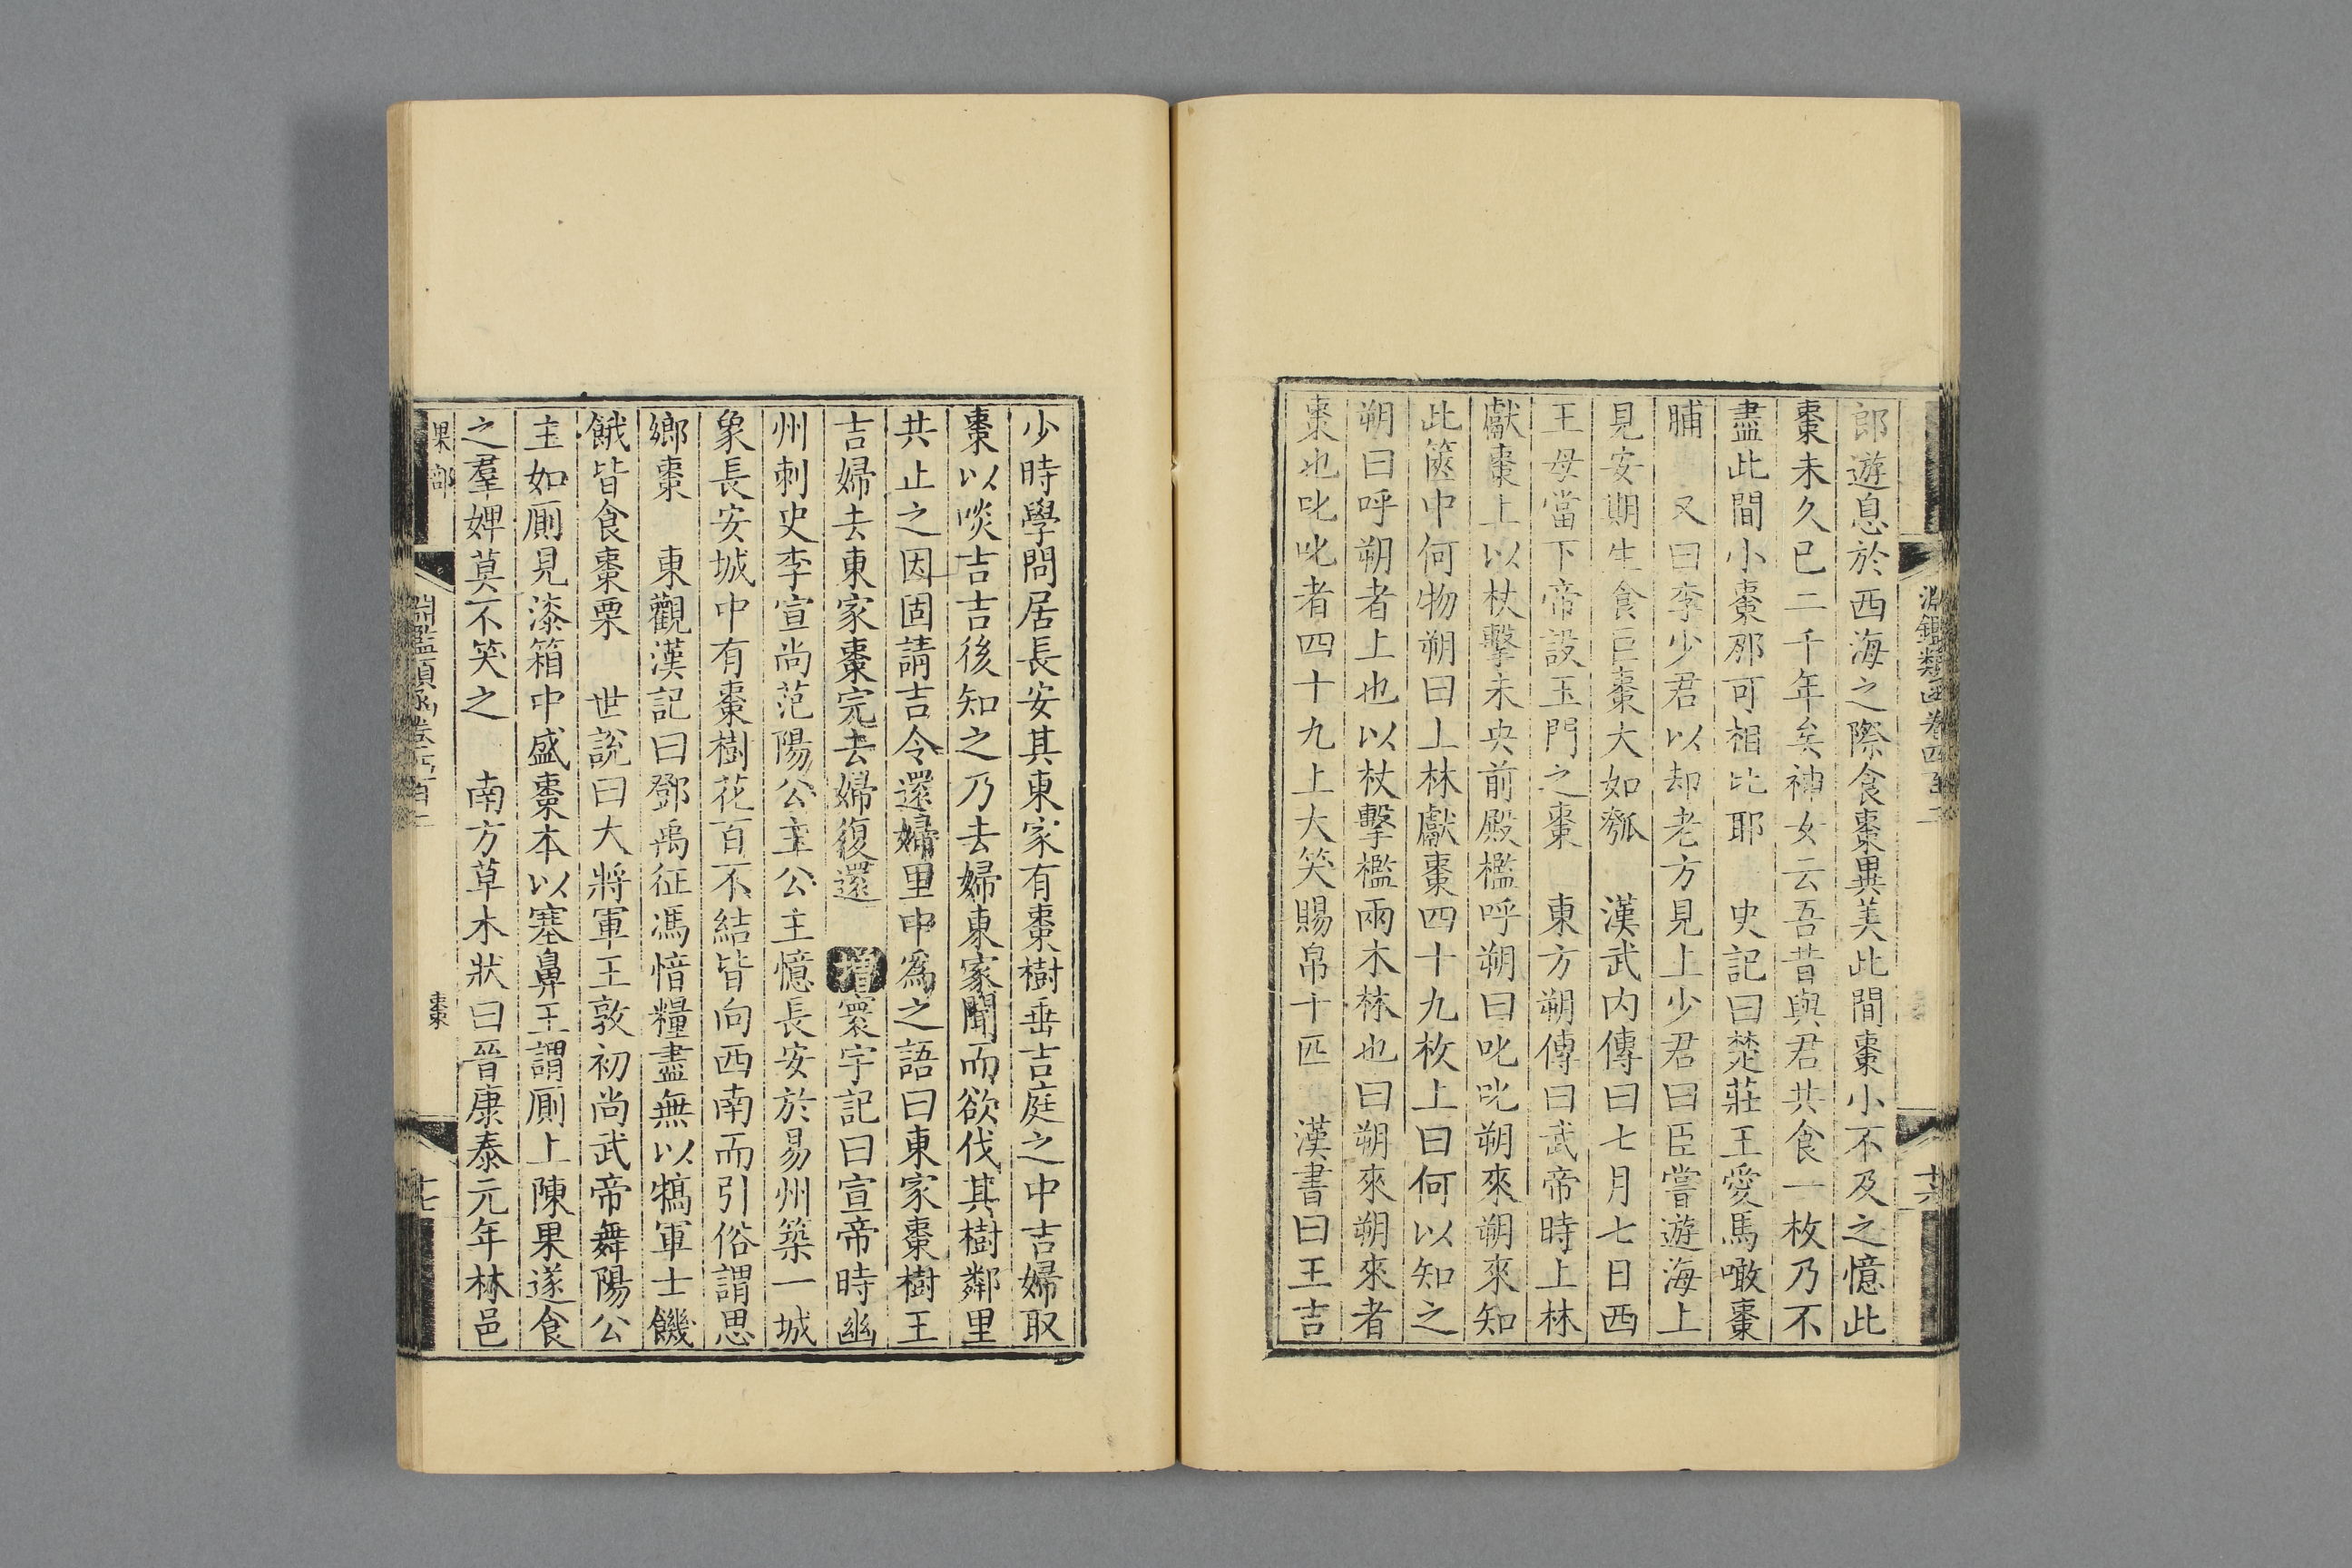 郎遊息於西海之際食棗異美此間棗小不及之憶此
棗未久已二千年矣神女云吾昔與君共食一枚乃不
盡此間小棗那可相比耶　史記曰楚莊王愛馬噉棗
脯　又曰李少君以却老方見上少君曰臣嘗遊海上
見安期生食巨棗大如瓠　漢武内傳曰七月七日西
王母當下帝設玉門之棗　東方朔傳曰武帝時上林
獻棗上以杖擊未央前殿檻呼朔曰叱叱朔來朔來知
此篋中何物朔曰上林獻棗四十九枚上曰何以知之
朔曰呼朔者上也以杖擊檻兩木林也曰朔來朔來者
棗也叱叱者四十九上大笑賜帛十匹　漢書曰王吉
淵鑑類函卷四百二
十六
少時學問居長安其東家有棗樹垂吉庭之中吉婦取
棗以啖吉吉後知之乃去婦東家聞而欲伐其樹鄰里
共止之因固請吉令還婦里中為之語曰東家棗樹王
吉婦去東家棗完去婦復還　增寰宇記曰宣帝時幽
州刺史李宣尚范陽公主公主憶長安於易州築一城
象長安城中有棗樹花而不結皆向西南而引俗謂思
鄉棗　東觀漢記曰鄧禹征馮愔糧盡無以犒軍士饑
餓皆食棗栗　世說曰大將軍王敦初尚武帝舞陽公
主如厠見漆箱中盛棗本以塞鼻王謂厠上陳果遂食
之羣婢莫不笑之　南方草木狀曰晉康泰元年林邑
果部
淵鑑類函卷四百二
棗
十七